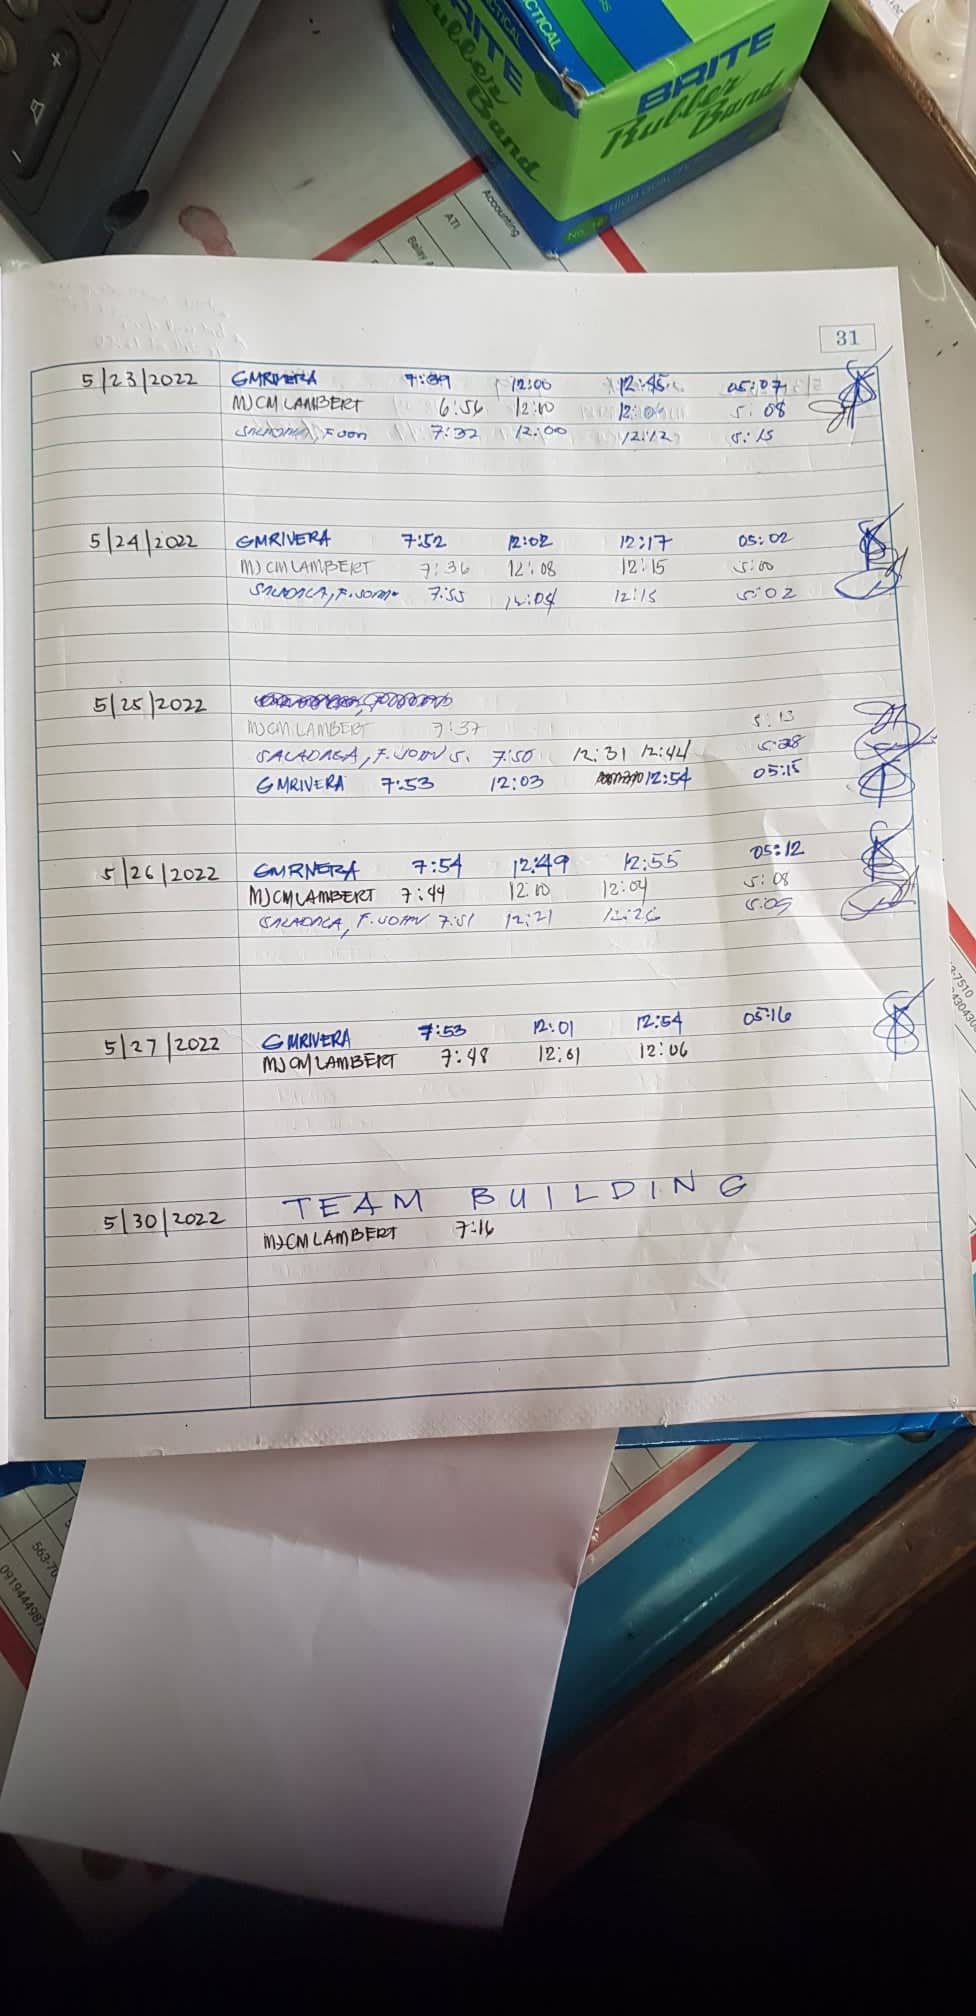 BRITE
Rubber
Band
BRITE
Rubber
Band
No. 18
Accounting
ATI
31
5/23/2022 GMRIVERA 7:39 12:00 12:45 05:07
MJCMLAMBERT 6:56 12:00 12:04 5:08
7:32 12:00 12:12 5:15
5/24/2022 GMRIVERA 7:52 12:02 12:17 05:02
MJCMLAMBERT 7:36 12:08 12:15 5:00
7:55 12:15 5:02
5/25/2022
MJCMLAMBERT 7:37 5:13
SALADAGA, F. JOHN S. 7:50 12:31 12:44 5:28
GMRIVERA 7:53 12:03 12:54 05:15
5/26/2022 GMRIVERA 7:54 12:49 12:55 05:12
MJCMLAMBERT 7:44 12:00 12:04 5:08
SALADAGA, F. JOHN 7:51 12:21 12:26 5:09
5/27/2022 GMRIVERA 7:53 12:01 12:54 05:16
MJCMLAMBERT 7:48 12:01 12:06
TEAM BUILDING
5/30/2022
MJCMLAMBERT 7:16